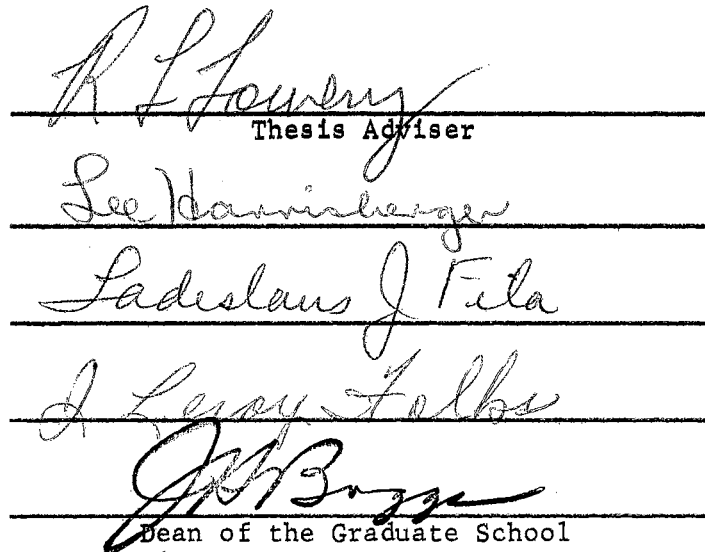 R L Lowery
Thesis Adviser
Lee Harrisberger
Ladislaus J Fila
J Leroy Folks
J H Boggs
Dean of the Graduate School